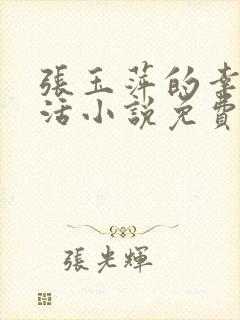 張玉萍的幸
活小說免費
張光輝